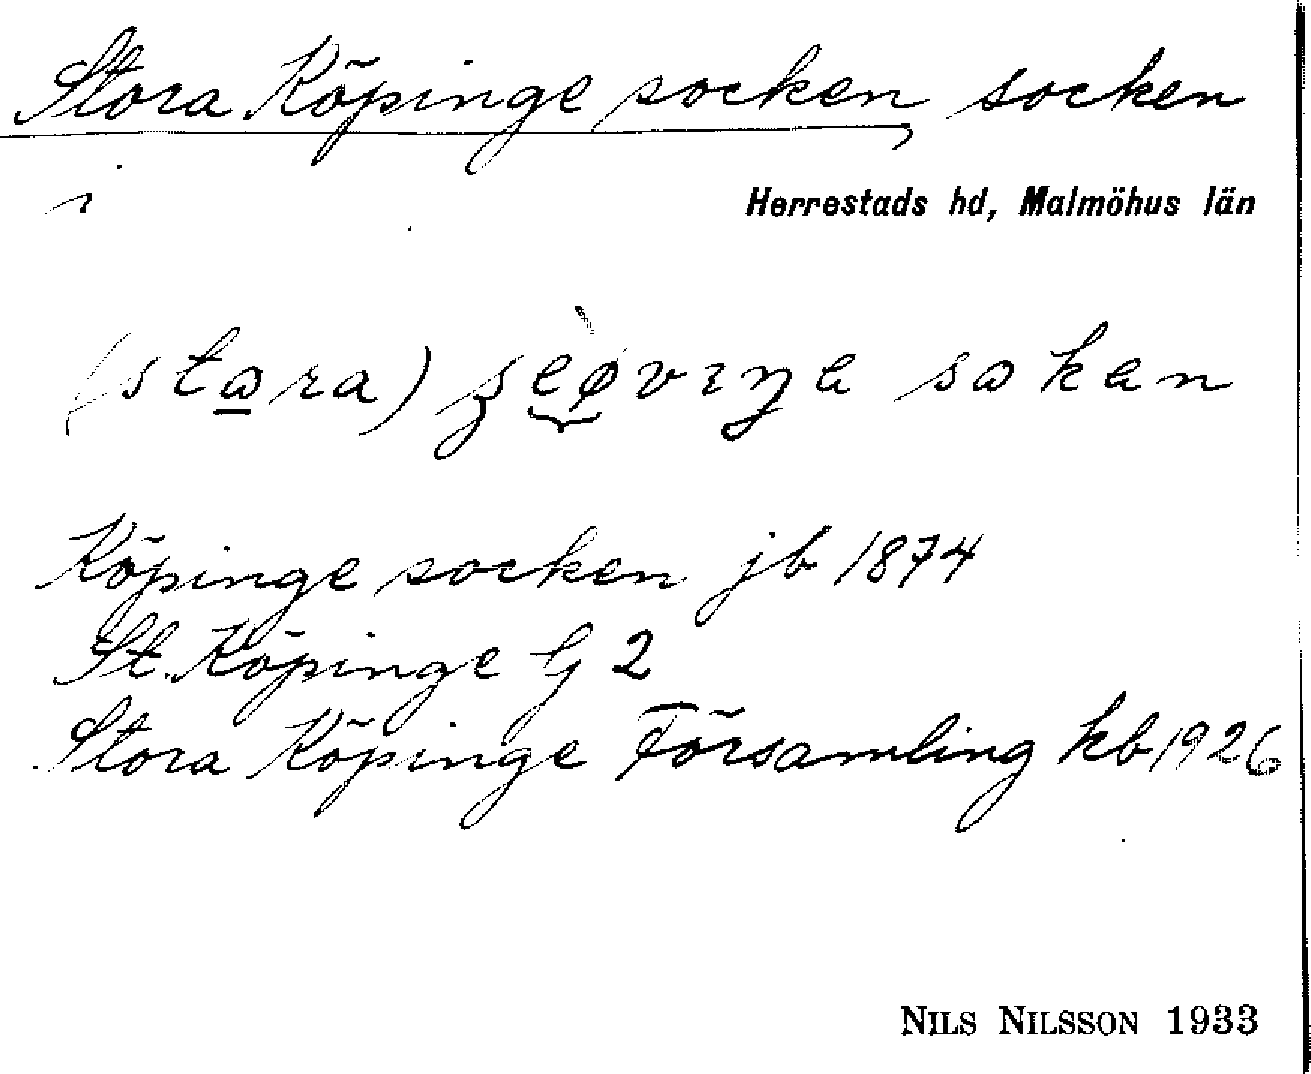 Stora Köpinge socken, socken
i Herrestads hd, Malmöhus län
Köpinge socken jb 1874
St. Köpinge G 2
Stora Köpinge Församling kb 1926
NILS NILSSON 1933